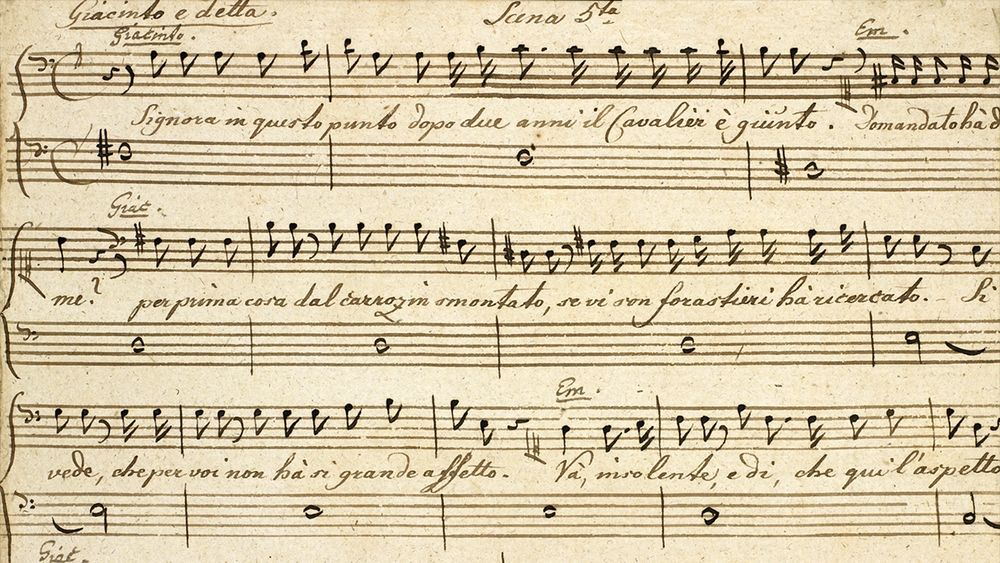 Giacinto e detta. Scena 5ta
Giacinto. Em.
Signora in questo punto dopo due anni il Cavalier è giunto. Domandato hà d
Giac.
me. per prima cosa dal carrozzin smontato, se vi son forastieri hà ricercato. Si
Em.
vede, che per voi non hà si grande affetto. Và, insolente, e di, che qui l'aspetto
Giac.